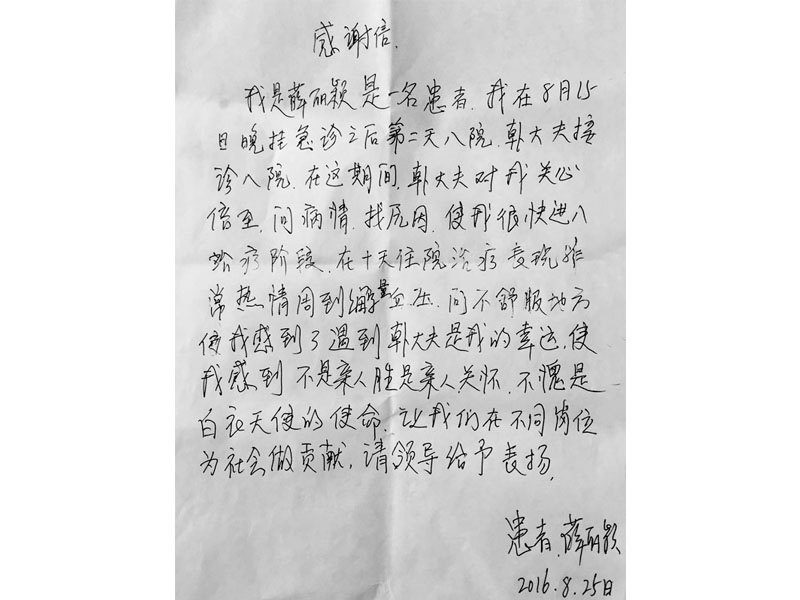 感谢信.
我是薛丽颖是一名患者.我在8月15
日晚挂急诊之后第二天入院.韩大夫接
诊入院.在这期间.韩大夫对我关心
倍至.问病情.找原因.使我很快进入
治疗阶段.在十天住院治疗表现非
常热情周到 量血压.问不舒服地方
使我感到了遇到韩大夫是我的幸运.使
我感到不是亲人胜是亲人关怀.不愧是
白衣天使的使命.让我们在不同岗位
为社会做贡献,请领导给予表扬.
患者.薛丽颖
2016.8.25日